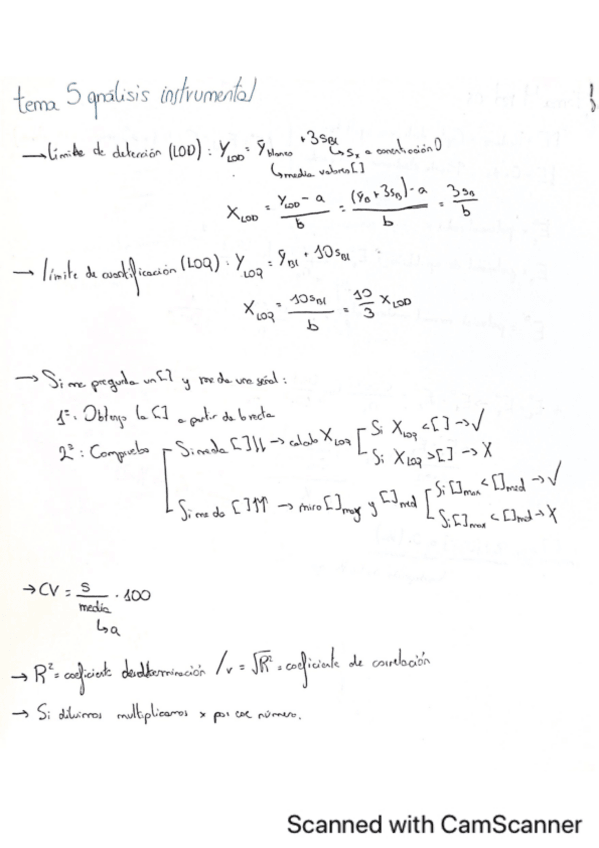 tema 5 análisis instrumental
→ Límite de detección (LOD) : Y_LOD = ȳ_blanco + 3s_Bl
↳ s_x a concentración 0
↳ media valores []
X_LOD = (Y_LOD - a)/b = ((ȳ_B + 3s_B) - a)/b = 3s_B/b
→ límite de cuantificación (LOQ) : Y_LOQ = ȳ_Bl + 10s_Bl
X_LOQ = 10s_Bl/b = 10/3 X_LOD
→ Si me pregunta un [] y me da una señal :
1º: Obtengo la [] a partir de la recta
2º: Compruebo
Si me da []↓↓ → calculo X_LOQ
Si X_LOQ < [] → ✓
Si X_LOQ > [] → X
Si me da []↑↑ → miro []max y []med
Si []max < []med → ✓
Si []max < []med → X
→ CV = s/media · 100
↳ a
→ R² = coeficiente de determinación / r = √R² = coeficiente de correlación
→ Si diluimos multiplicamos x por ese número.
Scanned with CamScanner